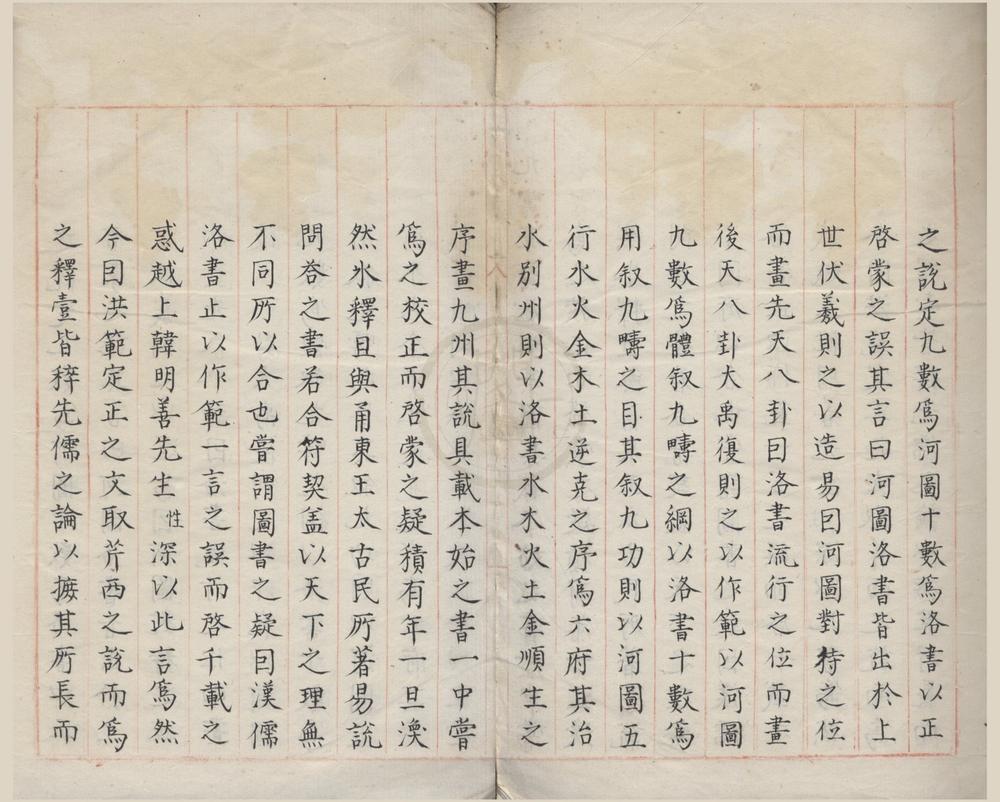 之說定九數爲河圖十數爲洛書以正
啓蒙之誤其言曰河圖洛書皆出於上
世伏羲則之以造易因河圖對待之位
而畫先天八卦因洛書流行之位而畫
後天八卦大禹復則之以作範以河圖
九數爲體叙九疇之綱以洛書十數爲
用叙九疇之目其叙九功則以河圖五
行水火金木土逆克之序爲六府其治
水別州則以洛書水木火土金順生之
序畫九州其說具載本始之書一中嘗
爲之校正而啓蒙之疑積有年一旦渙
然氷釋且與甬東王太古民所著易說
問荅之書若合符契盖以天下之理無
不同所以合也嘗謂圖書之疑因漢儒
洛書止以作範一言之誤而啓千載之
惑越上韓明善先生性深以此言爲然
今因洪範定正之文取芹西之說而爲
之釋壹皆稡先儒之論以摭其所長而